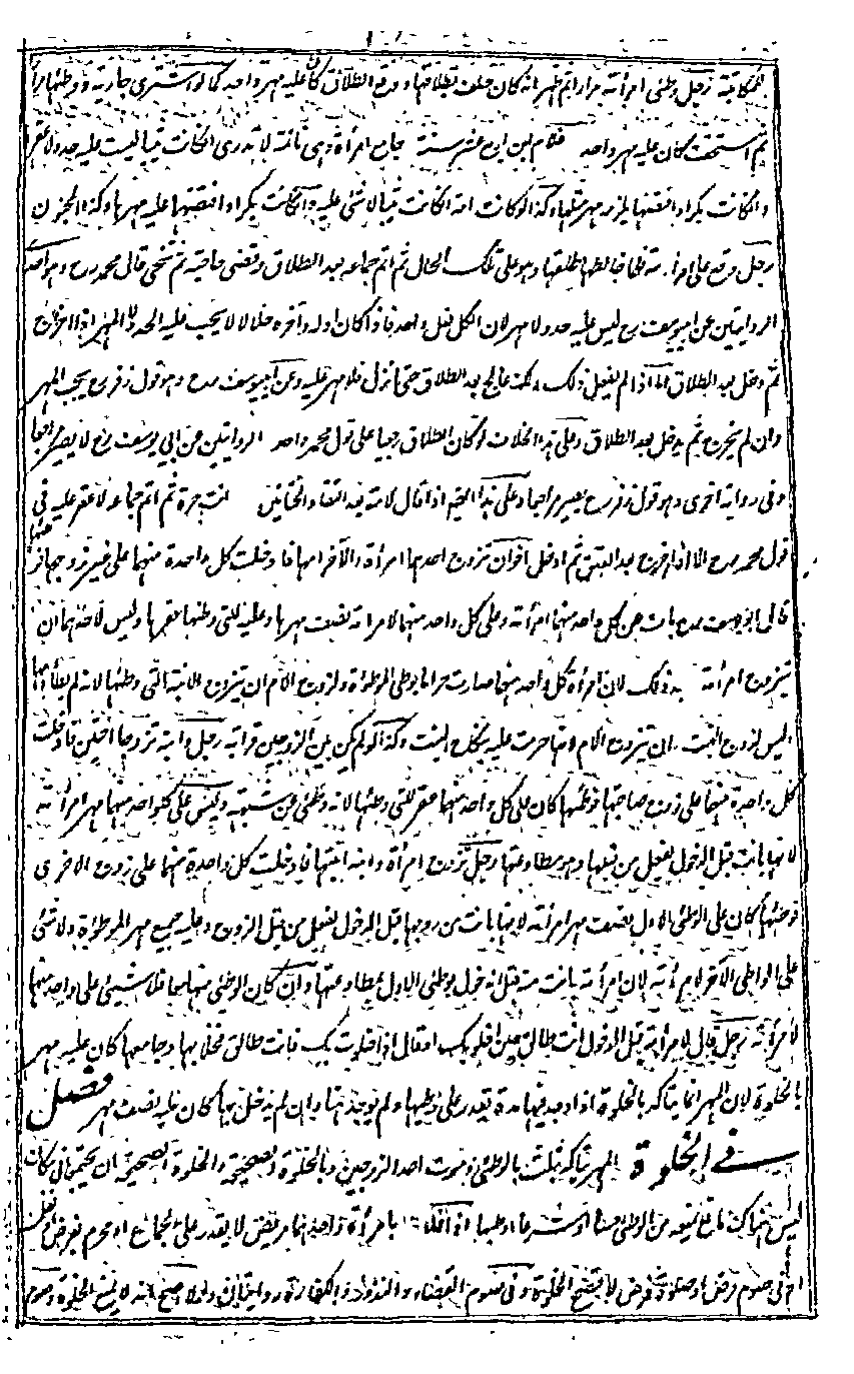 للمكاتبة رجل وطئ امرأته مرارا ثم ظهر انه كان حلف بطلاقها ووقع الطلاق كان عليه مهر واحد كما لو اشترى جارية ووطئها مرارا
ثم استحقت كان عليه مهر واحد غلام ابن اربع عشر سنة جامع امرأة وهى نائمة لا تدرى ان كانت ثيبا ليس عليه حد ولا عقر
وان كانت بكرا وافتضها يلزمه مهر مثلها وكذا لو كانت امة ان كانت ثيبا لا شئ عليه وان كانت بكرا وافتضها عليه مهرها وكذا المجنون
رجل وقع على امرأته فلما خالطها طلقها وهو على تلك الحال ثم اتم جماعه بعد الطلاق وقضى حاجته ثم تنحى قال محمد رح وهو احد
الروايتين عن ابى يوسف رح ليس عليه حد ولا مهر لان الكل فعل واحد فاذا كان اوله وآخره حلالا لا يجب عليه الحد ولا المهر الا اذا اخرج
ثم دخل بعد الطلاق اما اذا لم يفعل ذلك لكنه عالج بعد الطلاق حتى انزل فلا مهر عليه وعن ابى يوسف رح وهو قول زفر رح يجب المهر
وان لم يخرج ثم يدخل بعد الطلاق وعلى هذا الخلاف لو كان الطلاق رجعيا على قول محمد واحد الروايتين عن ابى يوسف رح لا يصير مراجعا
وفى رواية اخرى وهو قول زفر رح يصير مراجعا وعلى هذا اذا قال لامته بعد التقاء الختانين انت حرة ثم اتم جماعه لا عقر عليه فى
قول محمد رح الا اذا اخرج بعد العتق ثم ادخل اخوان تزوج احدهما امرأة والآخر امها فادخلت كل واحدة منهما على غير زوجها
قال ابو يوسف رح بانت عن كل واحد منهما امرأته وعلى كل واحد منهما لامرأته نصف مهرها وعليه للتى وطئها عقرها وليس لاحدهما ان
يتزوج امرأته بعد ذلك لان امرأة كل واحد منهما صارت حراما بوطئ الموطوءة ولزوج الام ان يتزوج الابنة التى وطئها لانه لم يطأ امها
وليس لزوج البنت ان يتزوج الام لانها حرمت عليه بنكاح البنت وكذا لو لم يكن بين الزوجين قرابة رجل وابنه تزوجا اختين فادخلت
كل واحدة منهما على زوج صاحبتها فوطئها كان على كل واحد منهما عقر للتى وطئها لانه وطئ عن شبهة وليس على كل واحد منهما مهر امرأته
لانها بانت قبل الدخول بفعل من قبلها وهو مطاوعتها رجل تزوج امرأة وابنه ابنتها فادخلت كل واحدة منهما على زوج الاخرى
فوطئها كان على الواطئ الاول نصف مهر امرأته لانها بانت من زوجها قبل الدخول بفعل من قبل الزوج وعليه جميع مهر الموطوءة ولا شئ
على الواطئ الآخر لامرأته لان امرأته بانت منه قبل الدخول بوطئ الاول بمطاوعتها وان كان الوطئ منهما معا فلا شئ على واحد منهما
لامرأته رجل قال لامرأته قبل الدخول انت طالق حين اخلو بك او قال اذا خلوت بك فانت طالق فخلا بها وجامعها كان عليه مهر
بالخلوة لان المهر انما يتأكد بالخلوة اذا وجد فيها مدة يقدر على وطيها ولم توجد هنا وان لم يدخل بها كان عليه نصف مهر فصل
فى الخلوة المهر يتأكد بثلث بالوطئ وبموت احد الزوجين وبالخلوة الصحيحة والخلوة الصحيحة ان يجتمعا فى مكان
ليس هناك مانع يمنعه من الوطئ حسا او شرعا او طبعا اذا خلا بامرأة واحدهما مريض لا يقدر على الجماع او محرم بفرض او نفل
او فى صوم فرض او صلوة فرض لا تصح الخلوة وفى صوم القضاء والنذور والكفارة روايتان والاصح انه لا يمنع الخلوة وصوم